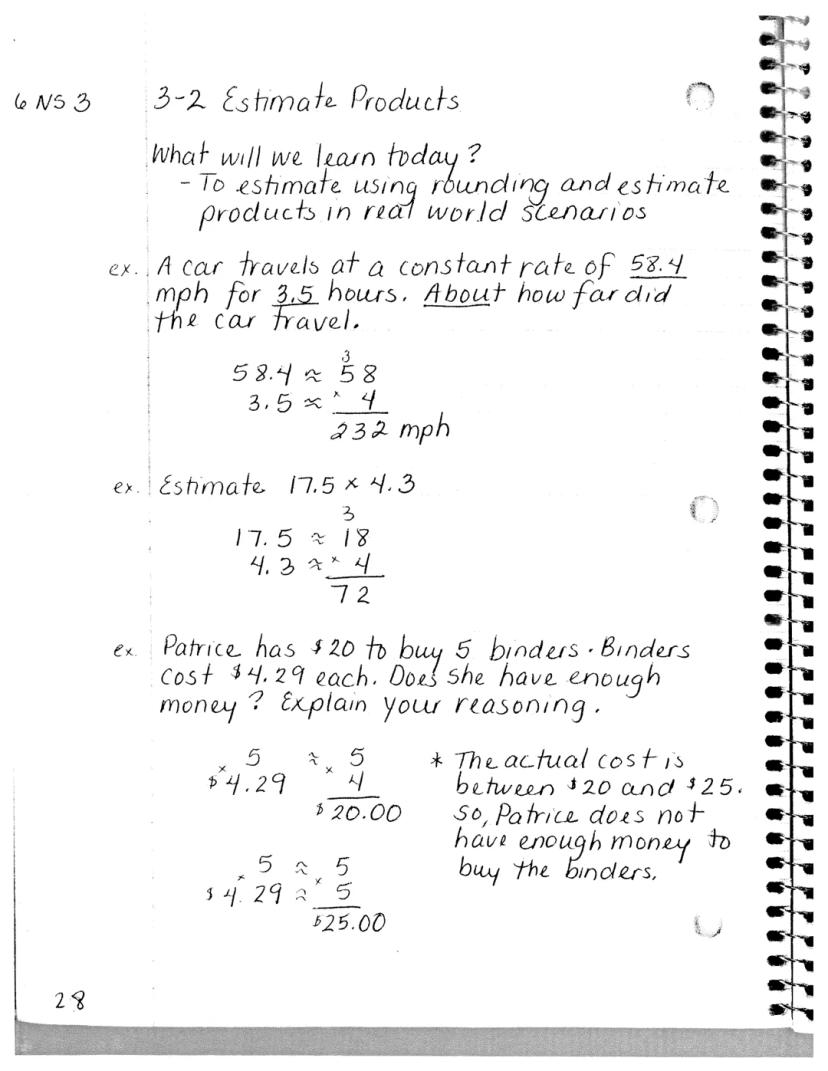 6 NS 3 3-2 Estimate Products
What will we learn today?
- To estimate using rounding and estimate
products in real world scenarios
ex. A car travels at a constant rate of 58.4
mph for 3.5 hours. About how far did
the car travel.
3
58.4 ≈ 58
3.5 ≈ × 4
232 mph
ex. Estimate 17.5 × 4.3
3
17.5 ≈ 18
4.3 ≈ × 4
72
ex. Patrice has $20 to buy 5 binders. Binders
cost $4.29 each. Does she have enough
money? Explain your reasoning.
× 5 ≈ × 5
$4.29 4
$20.00
× 5 ≈ × 5
$4.29 ≈ 5
$25.00
* The actual cost is
between $20 and $25.
So, Patrice does not
have enough money to
buy the binders.
28